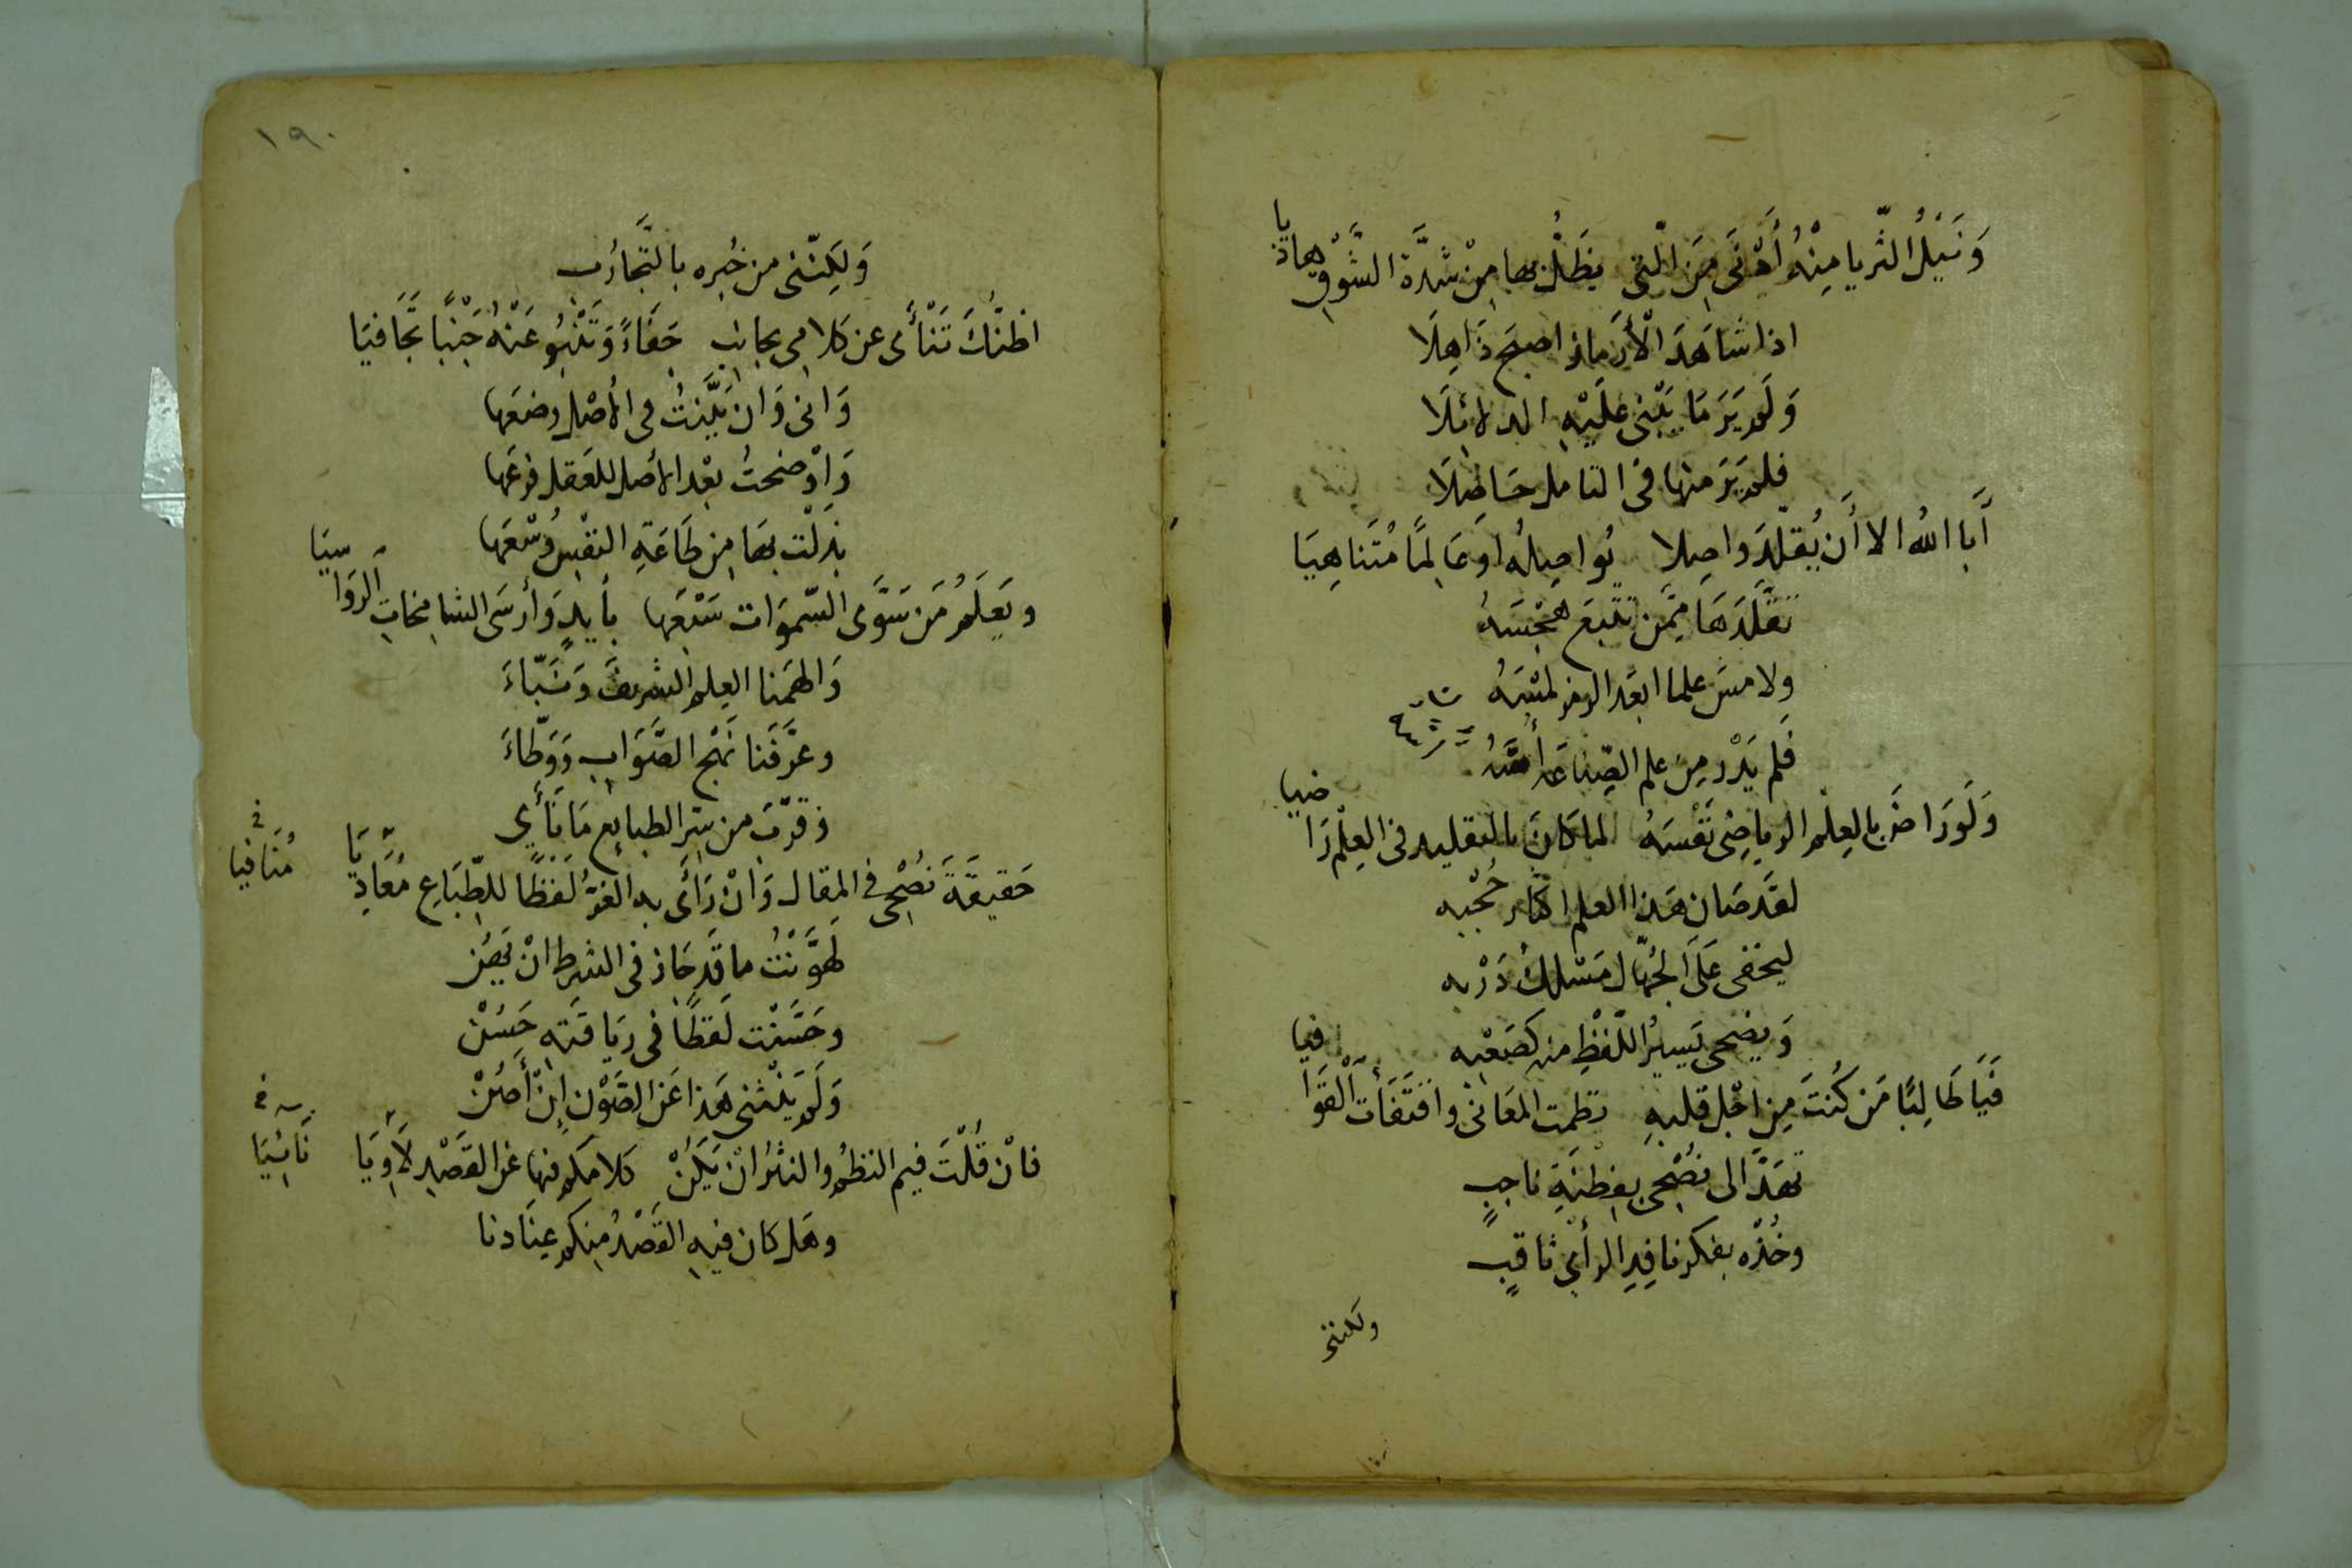 وَنَيْلُ الثّريا مِنْهُ أَدْنَى مِنَ الّتى يظَلُّ بها مِنْ شدَّة الشَّوْقِ هاذيا
اذا شَاهَدَ الأَرماز اصبحَ ذَاهِلَا
وَلَم يَرَ مَا يَبْنى عَلَيْهِ الدلائلَا
فلم يَرَ منها فى التامل حَاصِلَا
أَبا اللهُ الا أَن يُقلّد واصِلا يُواصِلُه او عَالِمًا مُتَناهِيَا
تقَلَّدَهَا مِمَّن تتبعَ هَجْسَهُ
ولا مسَ علما ابعَد الرمز لمْسَهُ
فَلم يَدْرِ مِن علم الصِّناعَة أُسَّهُ
وَلَو رَاضَ بالعِلم الرياضِى نَفْسَهُ لما كَانَ بالتقليد فى العِلْم رَاضيا
لقَد صَان هَذا العلم اكثار حُجْبِه
ليخفى عَلَى الجُهّال مَسْلك دَرْبه
وَيضحى يَسيرُ اللّفْظِ منه كصَعْبِه
فَيَا طَالِبًا مَن كُنتَ مِن اجْل قلبهِ نظمت المعَانى واقتَفَأت القوَافيا
تهَدَّ الى نُصْحى بفِطنَةِ ناجبٍ
وخُذْه بفكر نافِدِ الرأْي ثاقبٍ
ولكننى
١٩٠
وَلَكِنّنى من خُبره بالتَّجارُب
اظنُّكَ تَنْأَى عن كَلامِى بجانِبٍ جَفَاءً وَتَنْبُو عَنْهُ جَنْبًا تجَافيَا
وَانى وَان بَيَّنتُ فى الأصْل وضعَها
وَاوْضحتُ بعْد الأصل للعَقل فرعَها
بذَلْت بهَا مِن طَاعَةِ النفْسِ وُسْعَها
ويَعلَمُ مَن سَوَّى السّموَات سَبْعَها بأيدٍ وَأرسَى الشامِخاتِ الرَوَاسيَا
وَالهَمَنا العِلم الشريفَ وَنبّاءَ
وعرَّفَنا نَهْج الصَّوَابِ وَوَطّاءَ
وَقرّبَ من سِرّ الطبايع مَا نَأَي
حَقيقَةَ نُصْحِى فى المِقال وَانْ رَأَى به الغِرُّ لَفظًا للطِّبَاعِ مُعَادِيَا
مُنَافيا
لَهوَّنْتُ ما قَد حَاز فى الشرط انْ يَصُن
وحَسَّنْت لَفظًا فى رِيَاقَتِه حَسُنْ
وَلَم يَثْنِنى هَذا عَن الصَّوْن اِنْ أَصُنْ
فانْ قُلْتَ فيم النظمُ والنثرُ انْ يَكُنْ كلامكم فيها عَن القَصْدِ لَاوِيَا
نَائِيَا
وهَل كان فيهِ القَصْدُ مِنكم عِنَادنا